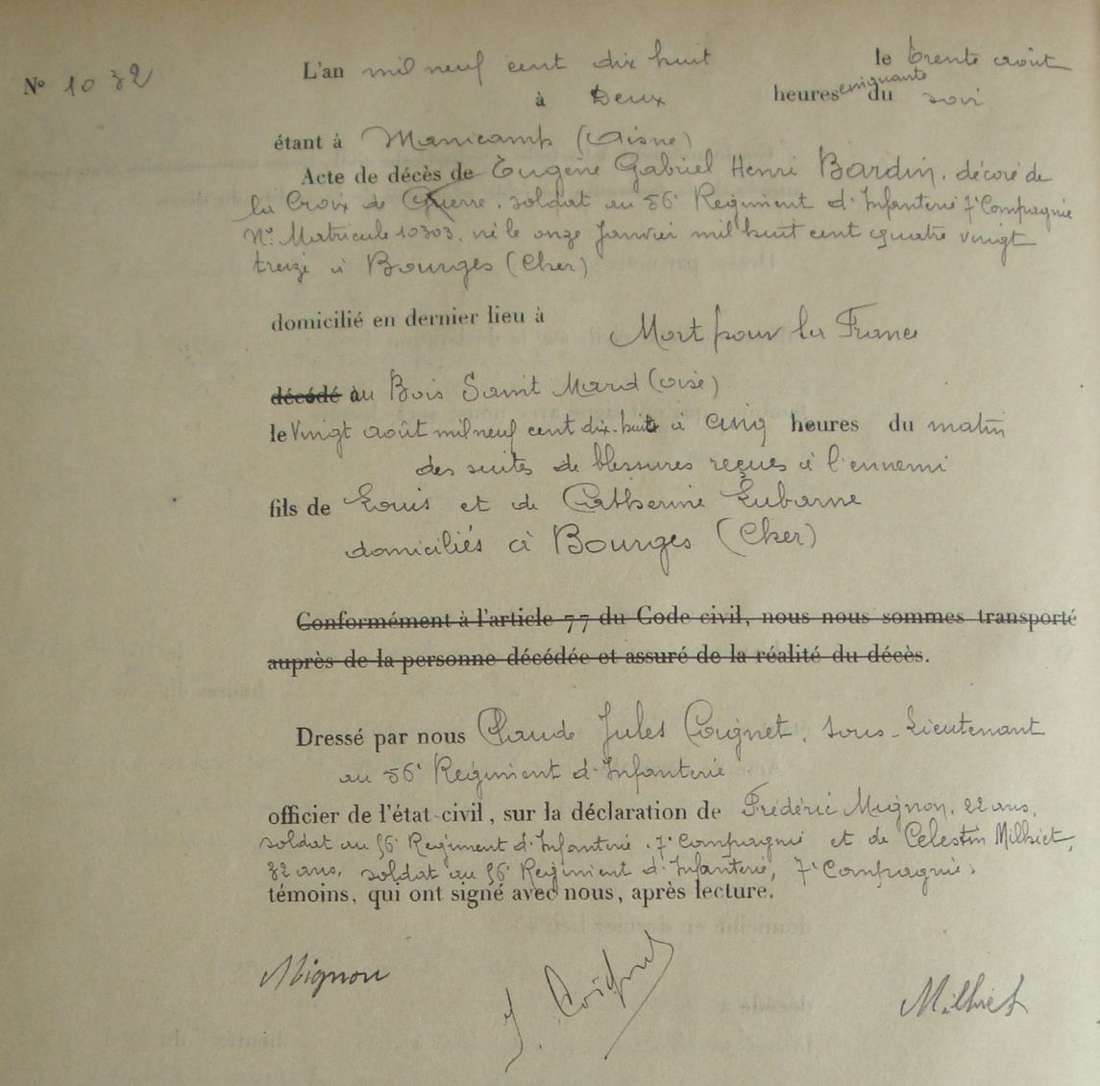 N° 1032
L'an mil neuf cent dix huit le trente août
à Deux heures cinquante du soir
étant à Manicamp (Aisne)
Acte de décès de Eugène Gabriel Henri Bardin, décoré de
la Croix de Guerre, soldat au 56e Regiment d'Infanterie 7e Compagnie
N° Matricule 10303, né le onze Janvier mil huit cent quatre vingt
treize à Bourges (Cher)
domicilié en dernier lieu à Mort pour la France
décédé au Bois Saint Mard (oise)
le Vingt août mil neuf cent dix-huit à cinq heures du matin
des suites de blessures reçues à l'ennemi
fils de Louis et de Catherine Lubarne
domiciliés à Bourges (Cher)
Conformément à l'article 77 du Code civil, nous nous sommes transporté
auprès de la personne décédée et assuré de la réalité du décès.
Dressé par nous Claude Jules Coignet, Sous-Lieutenant
au 56e Regiment d'Infanterie
officier de l'état-civil, sur la déclaration de Frédéric Mignon, 22 ans,
soldat au 56e Regiment d'Infanterie, 7e Compagnie et de Celestin Milhiet,
32 ans, soldat au 56e Regiment d'Infanterie, 7e Compagnie,
témoins, qui ont signé avec nous, après lecture.
Mignon J. Coignet Milhiet